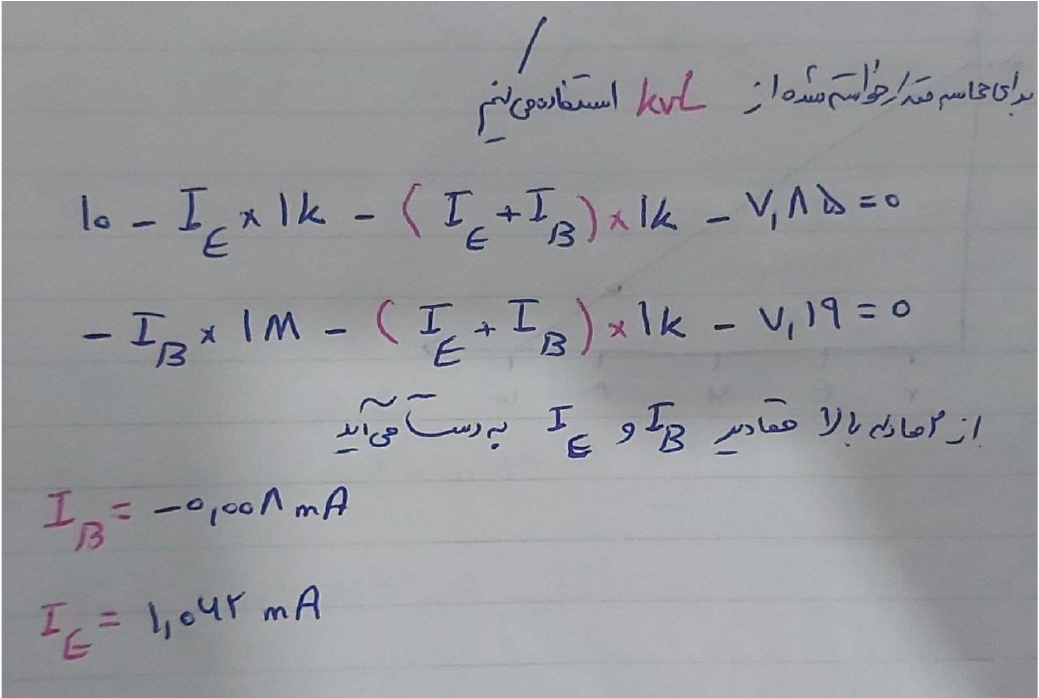 برای محاسبه مقدار خواسته شده از kvL استفاده می کنیم
۱۰ - I_E × ۱k - (I_E + I_B) × ۱k - ۷,۸۵ = ۰
- I_B × ۱M - (I_E + I_B) × ۱k - ۷,۱۹ = ۰
از ۲ معادله بالا مقادیر I_B و I_E به دست می آید
I_B = -۰,۰۰۸ mA
I_E = ۱,۰۶۲ mA